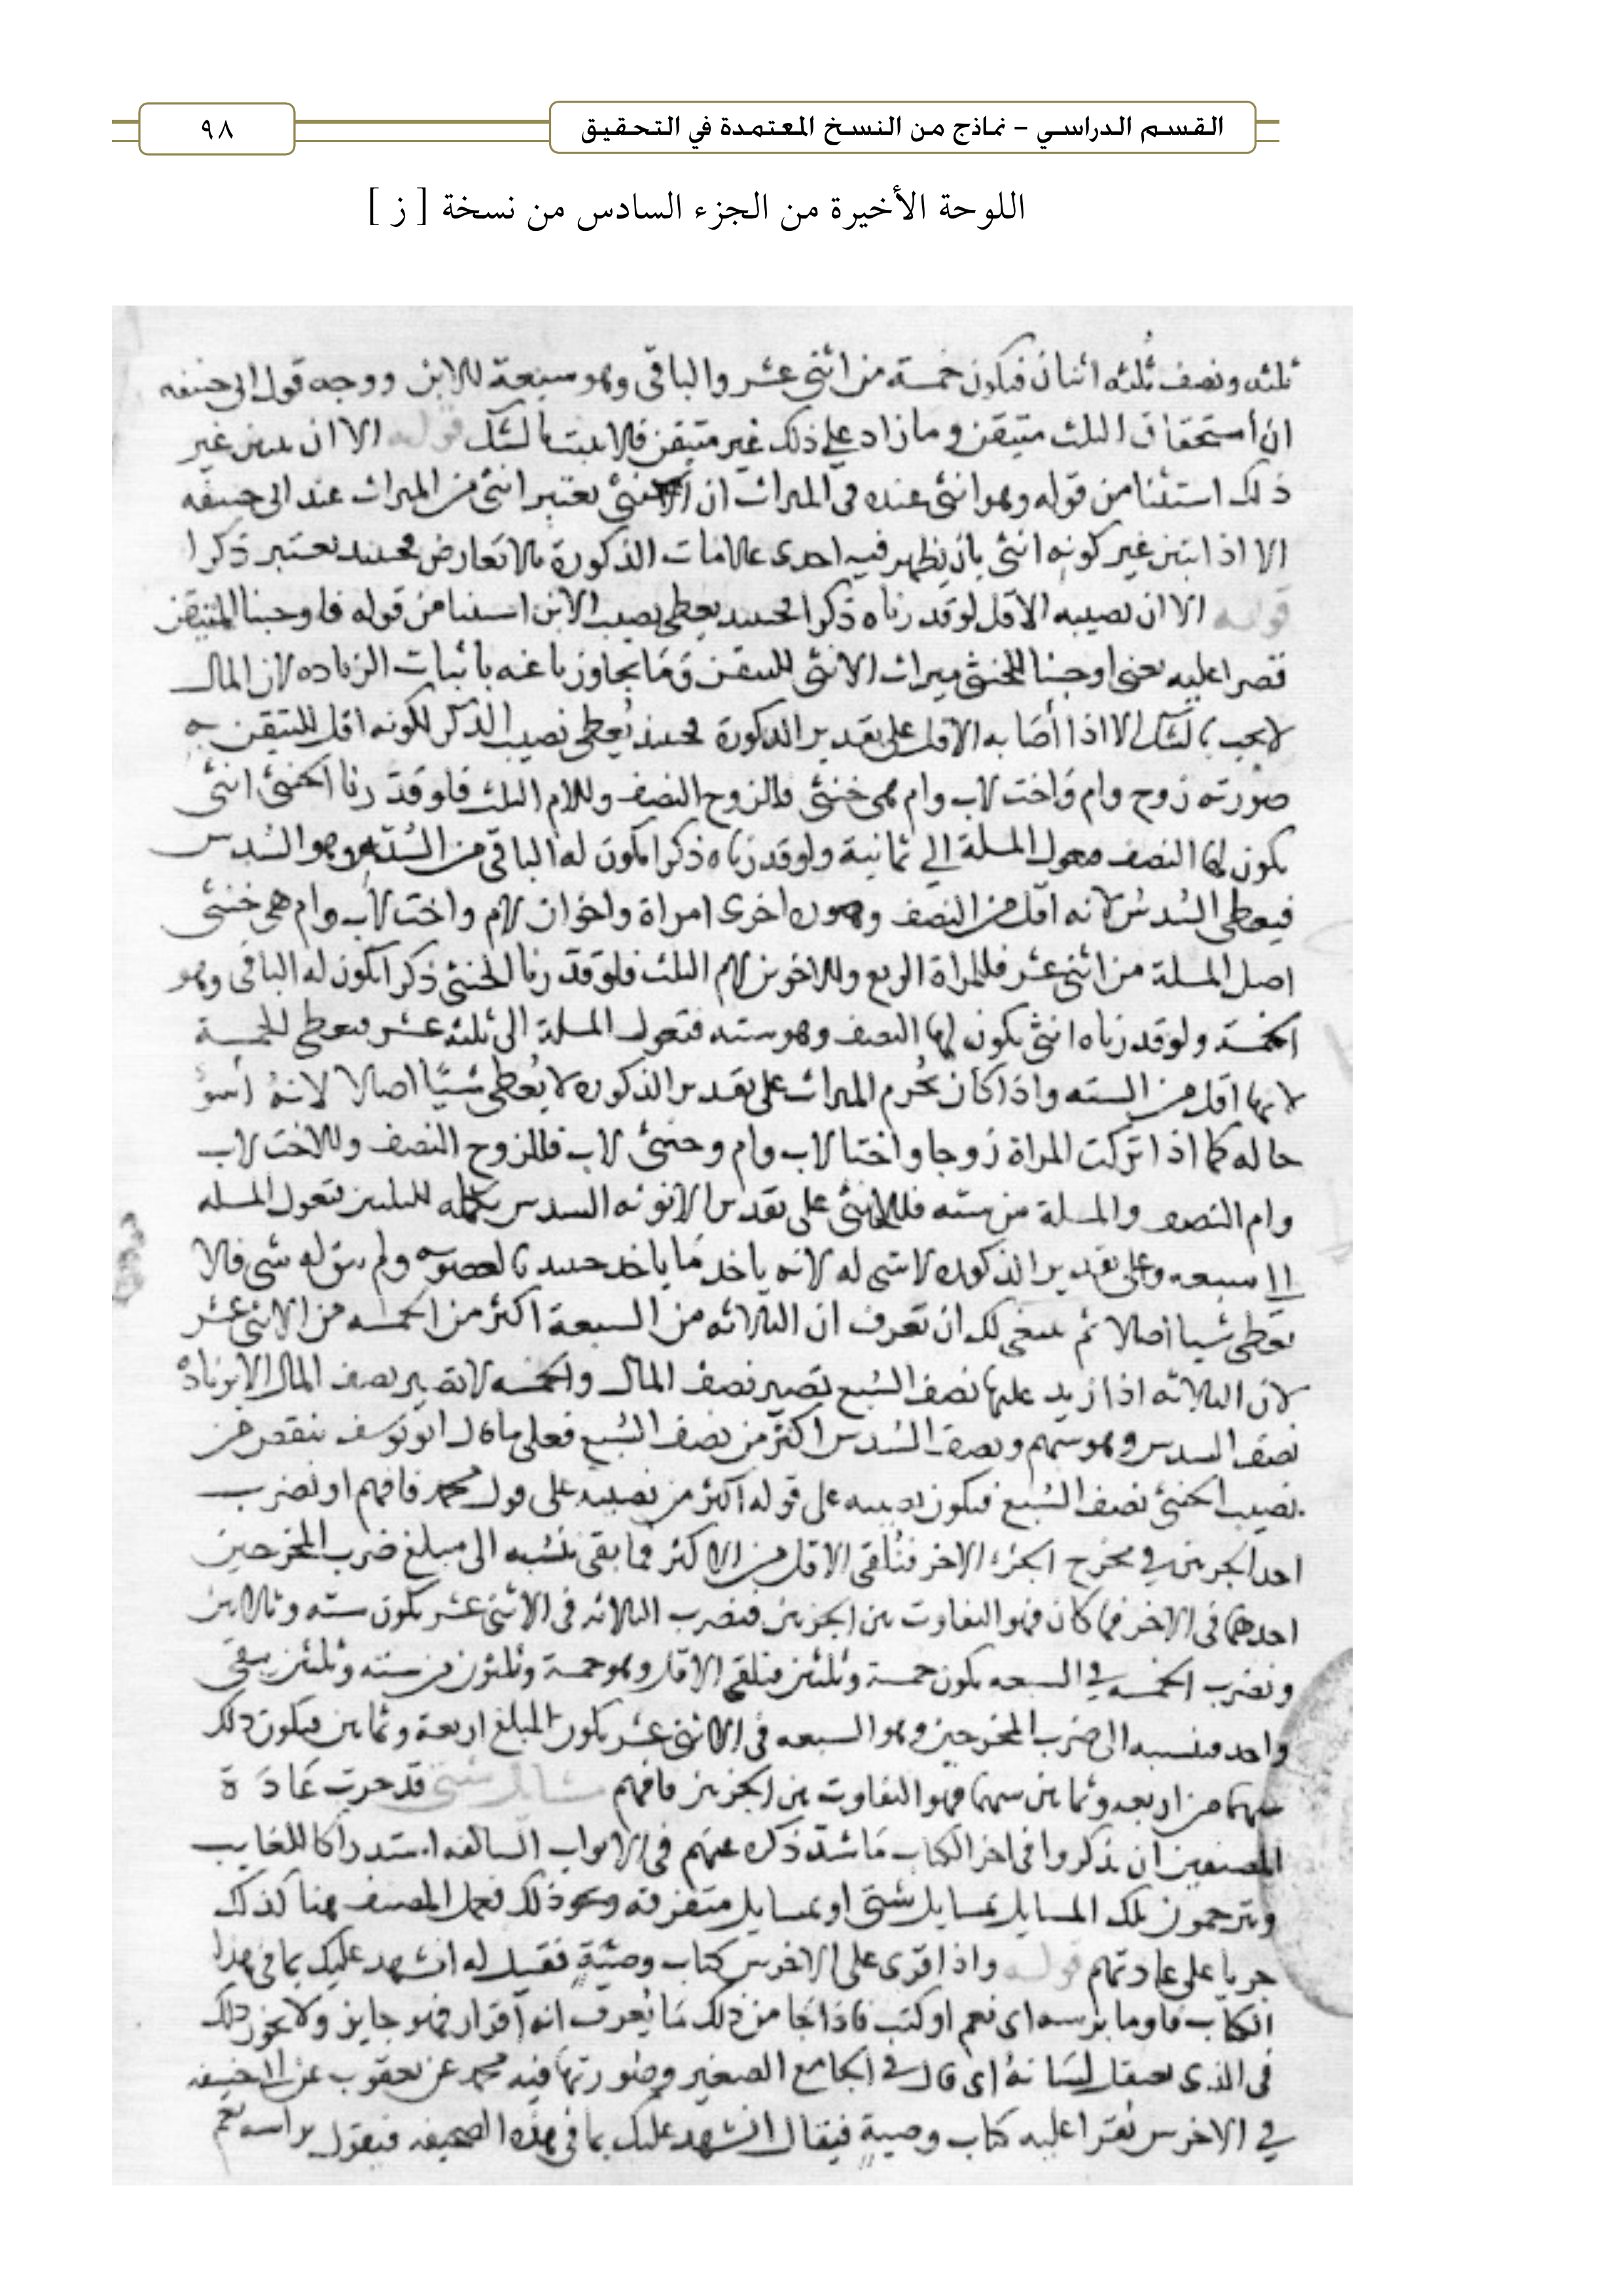 القسم الدراسي – نماذج من النسخ المعتمدة في التحقيق
٩٨
اللوحة الأخيرة من الجزء السادس من نسخة [ ز ]
ثلثه ونصف ثلثه اثنان فيكون خمسة من اثني عشر والباقي وهو سبعة للابن ووجه قول ابي حنيفه
ان استحقاق الثلث متيقن وما زاد على ذلك غير متيقن فلا يثبت بالشك قوله الا ان يتبين غير
ذلك استثنا من قوله وهو انثى عنده في الميراث ان الخنثى يعتبر انثى من الميراث عند ابي حنيفه
الا اذا تبين غير كونه انثى بان يظهر فيه احدى علامات الذكورة بلا تعارض فحينئذ يعتبر ذكرا
قوله الا ان نصيبه الاقل لو قدرناه ذكرا فحينئذ يعطى نصيب الابن استثنا من قوله فاوجبنا المتيقن
قصرا عليه يعني اوجبنا للخنثى ميراث الانثى للتيقن وما تجاوزنا عنه باثبات الزياده لان المال
لا يجب بالشك الا اذا اصابه الاقل على تقدير الذكورة فحينئذ يُعطى نصيب الذكر لكونه اقل للتيقن به
صورته زوج وام واخت لاب وام هى خنثى فللزوج النصف وللام الثلث فلو قدرنا الخنثى انثى
يكون لها النصف فتعول المسلة الي ثمانية ولو قدرناه ذكرا يكون له الباقي من الستة وهو السُدس
فيعطى السُدس لانه اقل من النصف وصورة اخرى امراة واخوان لام واخت لاب وام هى خنثى
اصل المسلة من اثنى عشر فللمراة الربع وللاخوين لام الثلث فلو قدرنا الخنثى ذكرا يكون له الباقى وهو
الخمسة ولو قدرناه انثى يكون لها النصف وهو سته فتعول المسلة الى ثلثه عشر فيعطى الخمسة
لانها اقل من السته واذا كان يُحرم الميراث على تقدير الذكوره لا يُعطى شيئًا اصلا لانهُ أسوؤ
حاله كما اذا تركت المراة زوجا واختا لاب وام وخنثى لاب فللزوج النصف وللاخت لاب
وام النصف والمسلة من سته فللخنثى على تقدير الانوثه السدس تكمله للثلثين فتعول المسله
الى سبعه وعلى تقدير الذكوره لا شى له لانه ياخذ ما ياخذ حينئذ بالعصوبه ولم يبق له شى فلا
يعطى شيا اصلا ثم ينبغى لك ان تعرف ان الثلاثه من السبعة اكثر من الخمسه من الاثنى عشر
لان الثلاثه اذا زيد عليها نصف السُبع تصير نصف المال والخمسه لا تصير نصف المال الا بزيادة
نصف السدس وهو سهم ونصف السُدس اكثر من نصف السُبع فعلى ما قال ابو يوسف ينقص من
نصيب الخنثى نصف السُبع فيكون نصيبه على قوله اكثر من نصيبه على قول محمد فافهم او نضرب
احد الجزئين في مخرج الجزء الاخر فتُلقى الاقل من الاكثر فما بقى تنسُبه الى مبلغ ضرب المخرجين
احدهما فى الاخر فما كان فهو التفاوت بين الجزئين فنضرب الثلاثه فى الاثنى عشر يكون سته وثلاثين
ونضرب الخمسه في السبعه يكون خمسة وثلثين فتلقى الاقل وهو خمسة وثلثون من سته وثلثين يبقى
واحد فتنسبه الى ضرب المخرجين وهو السبعه فى الاثنى عشر يكون المبلغ اربعة وثمانين فيكون ذلك
سهما من اربعه وثمانين سهما فهو التفاوت بين الجزئين فافهم مسايل شتى قد جرت عادة
المصنفين ان يذكروا فى اخر الكتاب ما شذ ذكره عنهم فى الابواب السالفه استدراكا للغايب
ويترجمون تلك المسايل بمسايل شتى او بمسايل متفرقه ونحو ذلك فعمل المصنف هنا كذلك
جريا على عادتهم قوله واذا قرى على الاخرس كتاب وصيّةٍ فقيل له انشهد عليك بما فى هذا
الكتاب فاوما براسه اى نعم او كتب فاذا جا من ذلك ما يُعرف انه اقرار فهو جايز ولا يجوز ذلك
فى الذى يعتقل لسانهُ اى قال في الجامع الصغير وصورتها فيه محمد عن يعقوب عن ابي حنيفه
في الاخرس يُقرا عليه كتاب وصيةٍ فيقال انشهد عليك بما فى هذه الصحيفه فيقول براسه نعم